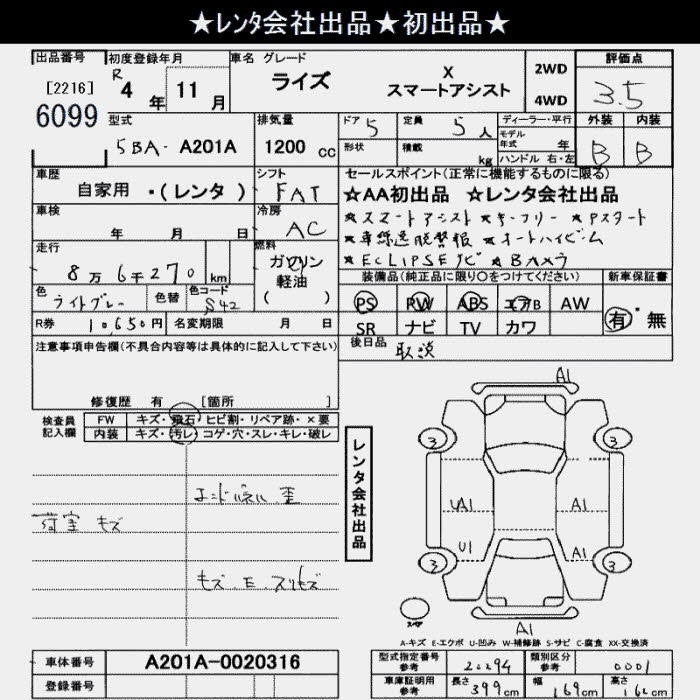 ★レンタ会社出品★初出品★
出品番号 初度登録年月 車名 グレード 評価点
[2216] R 4 年 11 月 ライズ X スマートアシスト 2WD 4WD 3.5
6099
型式 排気量 ドア 5 定員 5人 ディーラー・平行 外装 内装
5BA- A201A 1200 cc 形状 積載 kg モデル年式 年 ハンドル 右・左 B B
車歴 シフト セールスポイント(正常に機能するものに限る)
自家用 ・(レンタ) FAT ☆AA初出品 ☆レンタ会社出品
車検 冷房 ★スマートアシスト ★キーフリー ★Pスタート
年 月 日 AC ★車線逸脱警報 ★オートハイビーム
走行 燃料 ★ECLIPSEナビ ★BAカメラ
8万6千270 km ガソリン 軽油 ( ) 装備品(純正品に限り○をつけてください) 新車保証書
色 ライトグレー 色替 色コード S42 PS PW ABS エアB AW 有・無
R券 10650円 名変期限 月 日 SR ナビ TV カワ
注意事項申告欄(不具合内容等は具体的に記入して下さい) 後日品 取説
修復歴 有 [箇所 ]
検査員記入欄 FW キズ・飛石・ヒビ割・リペア跡・×要
内装 キズ・汚レ・コゲ・穴・スレ・キレ・破レ
エンドパネル 歪
荷室 キズ
キズ・E・スリキズ
レンタ会社出品
A1
3 3
UA1 A1
U1 A1
3 3
スペア A1
A-キズ E-エクボ U-凹み W-補修跡 S-サビ C-腐食 XX-交換済
車体番号 A201A-0020316
登録番号
型式指定番号 参考 20294 類別区分 参考 0001
車庫証明用 参考 長さ 399cm 幅 169cm 高さ 162cm